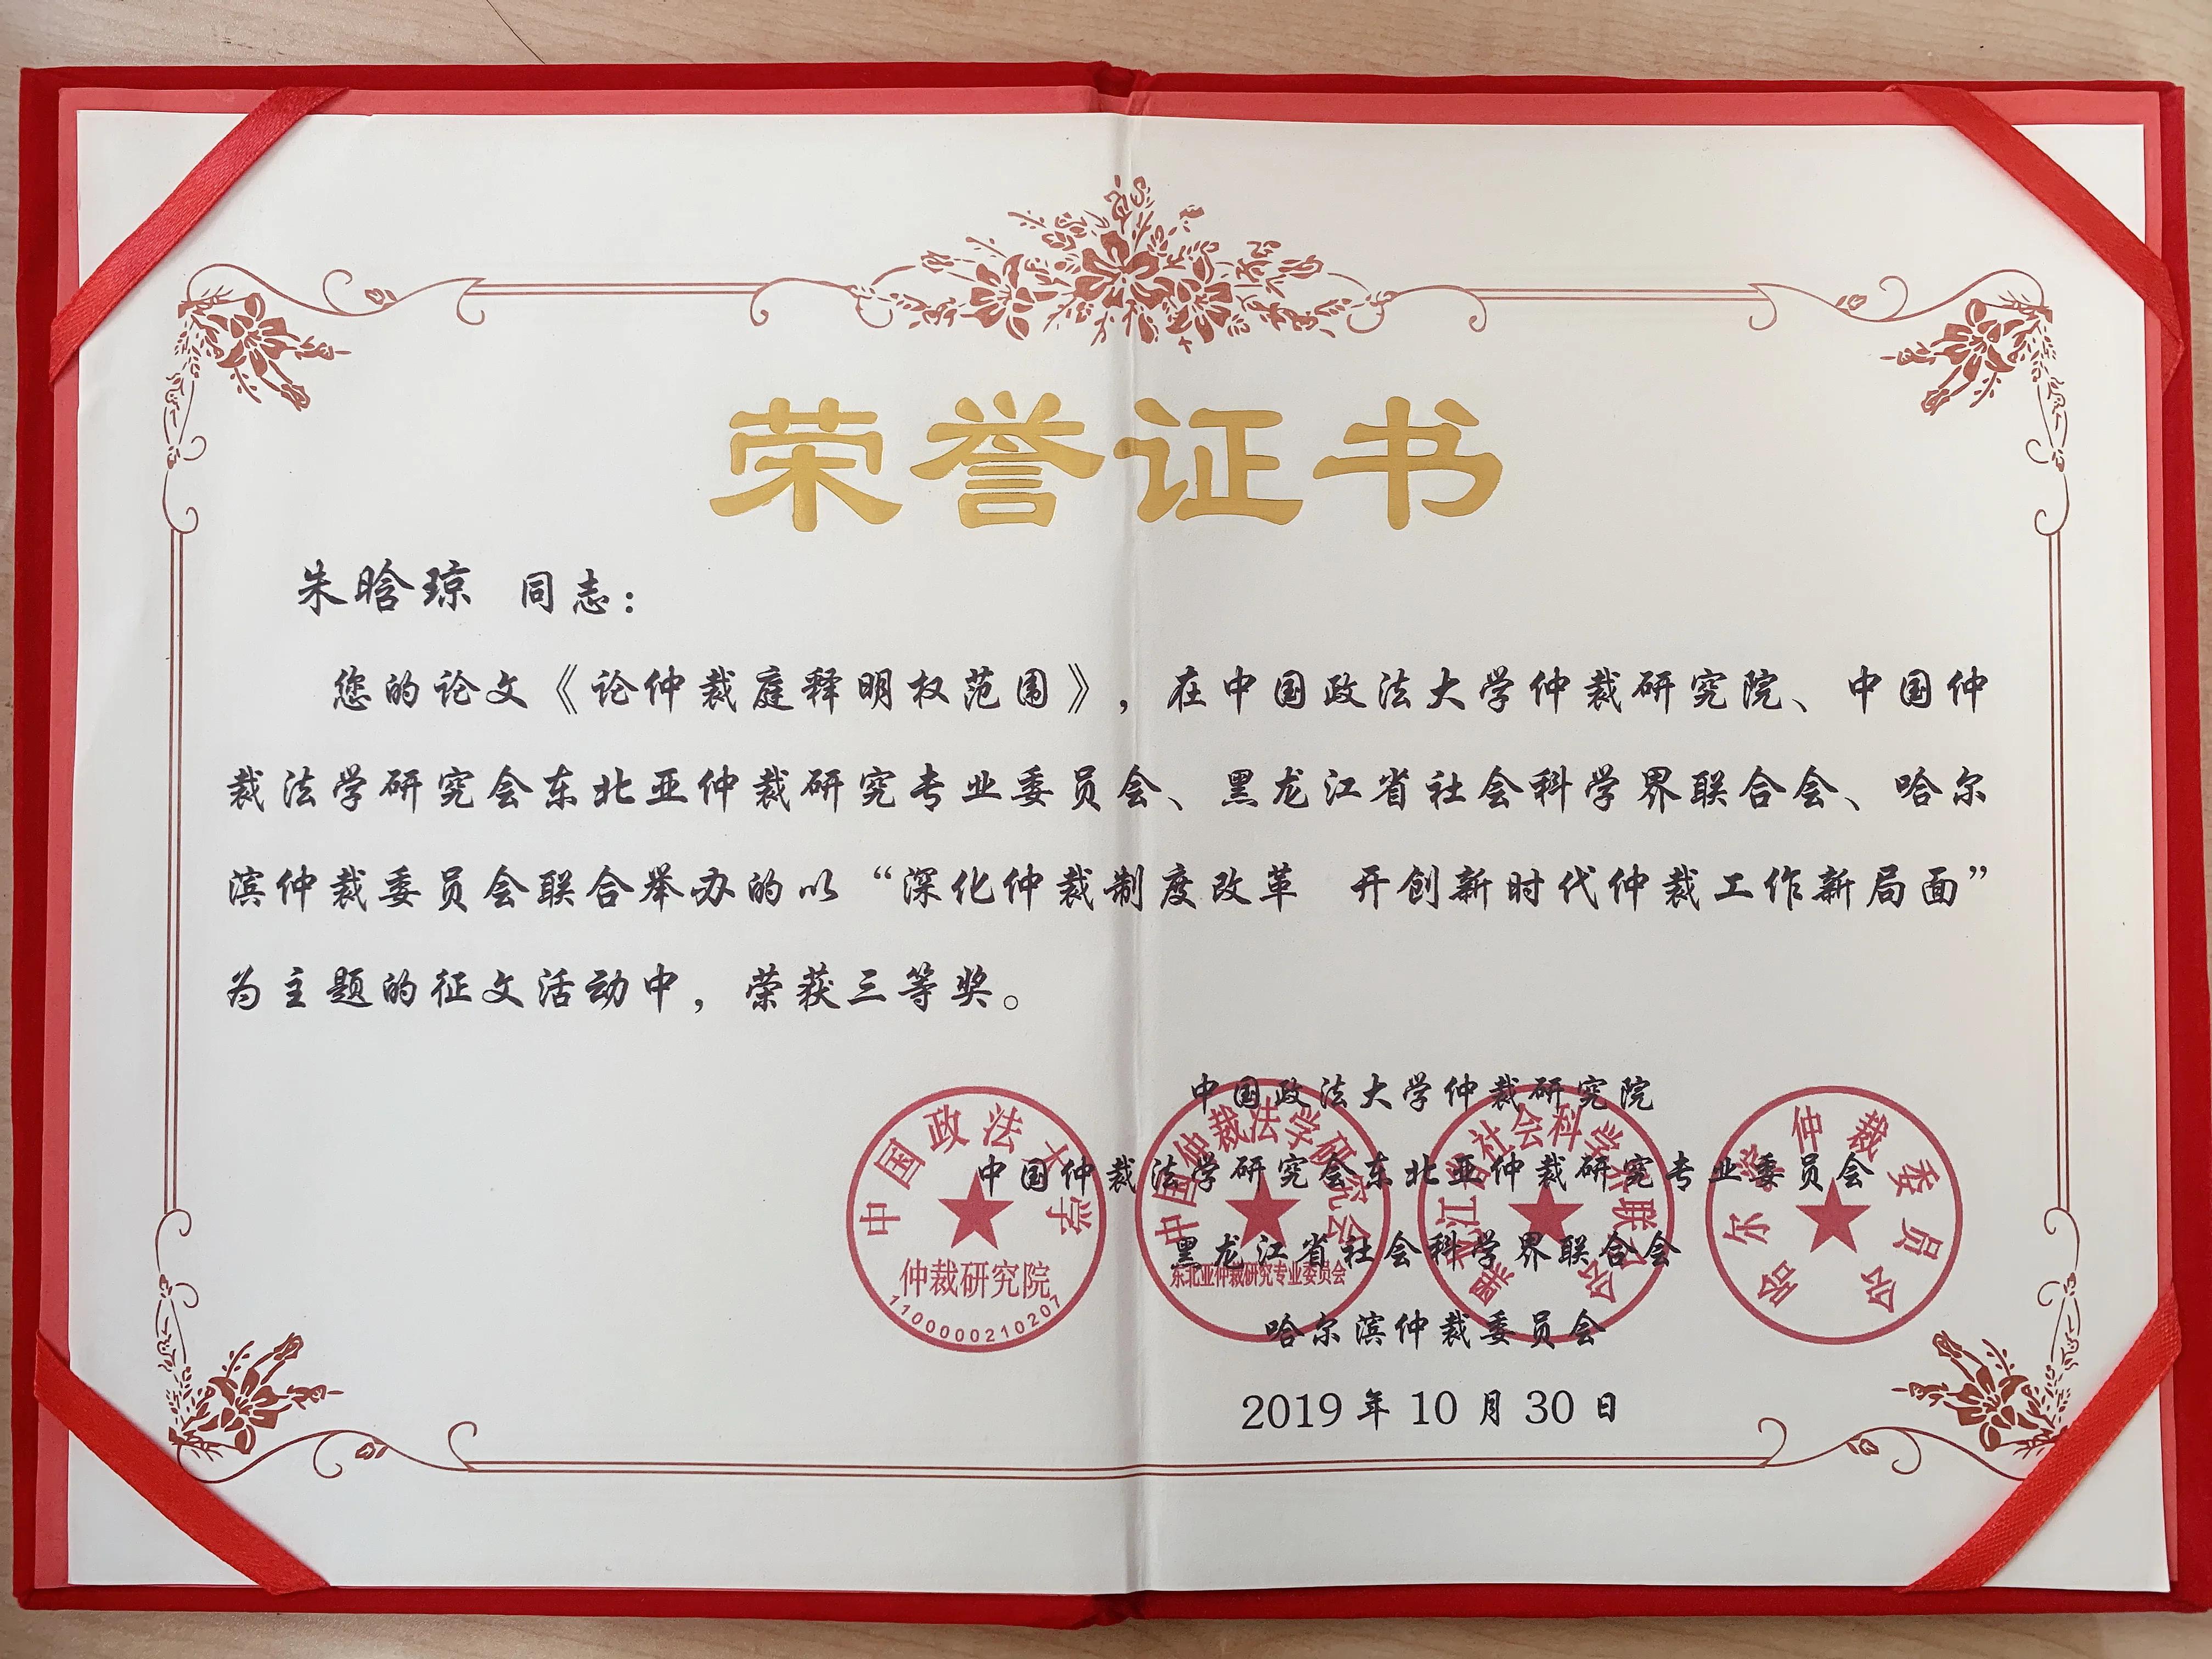 荣誉证书
朱晗琼 同志：
您的论文《论仲裁庭释明权范围》，在中国政法大学仲裁研究院、中国仲
裁法学研究会东北亚仲裁研究专业委员会、黑龙江省社会科学界联合会、哈尔
滨仲裁委员会联合举办的以“深化仲裁制度改革 开创新时代仲裁工作新局面”
为主题的征文活动中，荣获三等奖。
中国政法大学仲裁研究院
中国仲裁法学研究会东北亚仲裁研究专业委员会
黑龙江省社会科学界联合会
哈尔滨仲裁委员会
2019年10月30日
中国政法大学
仲裁研究院
1100000210207
中国仲裁法学研究会
东北亚仲裁研究专业委员会
黑龙江省社会科学界联合会
哈尔滨仲裁委员会